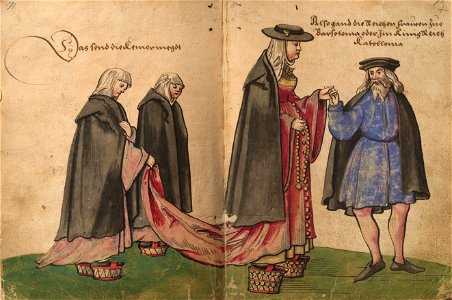 Das send die kemermegdt
Also gand die Reichen frauwen zuo
Barsolonia oder Im Küng Reich
Katolonia